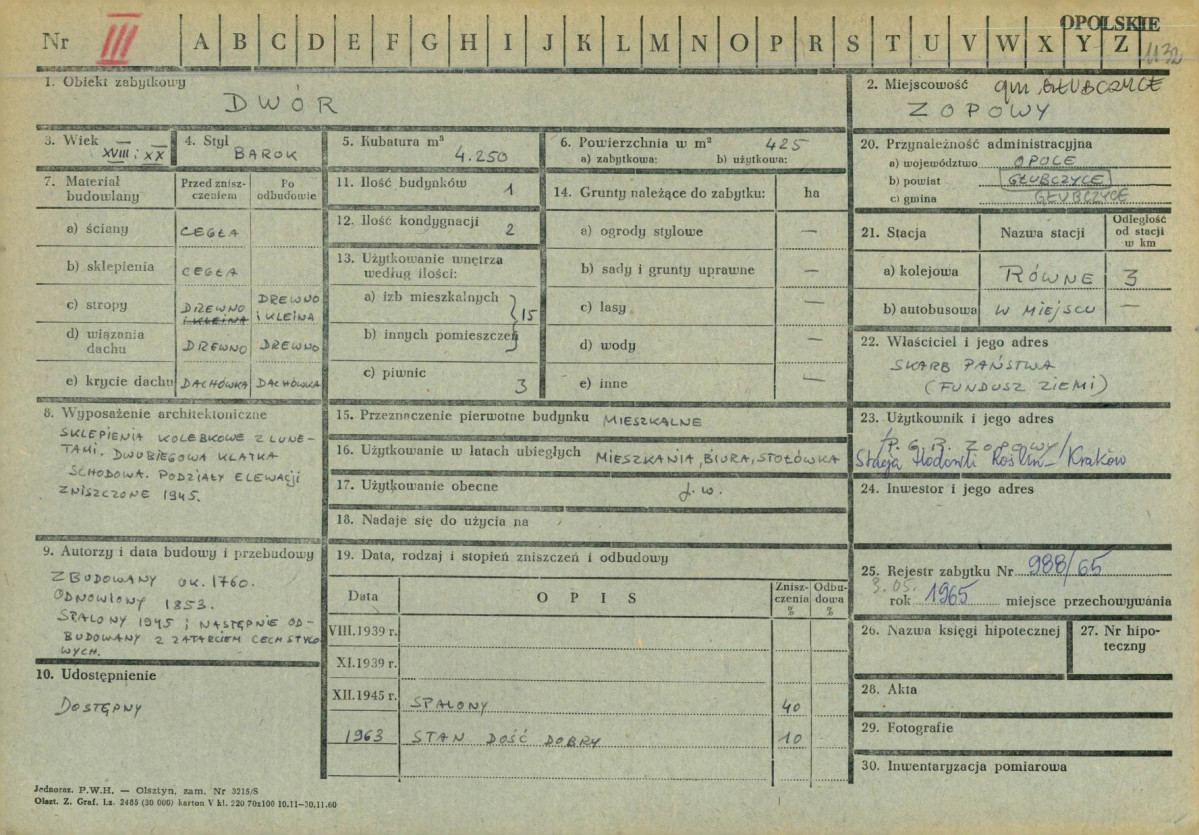 OPOLSKIE
Nr III A B C D E F G H I J K L M N O P R S T U V W X Y Z
1132
1. Obiekt zabytkowy
DWÓR
2. Miejscowość gm. GŁUBCZYCE
ZOPOWY
3. Wiek
XVIII i XX
4. Styl
BAROK
5. Kubatura m³
4.250
6. Powierzchnia w m² 425
a) zabytkowa: b) użytkowa:
20. Przynależność administracyjna
a) województwo OPOLE
b) powiat GŁUBCZYCE
c) gmina GŁUBCZYCE
7. Materiał budowlany
Przed zniszczeniem
Po odbudowie
a) ściany CEGŁA
b) sklepienia CEGŁA
c) stropy DREWNO i KLEINA DREWNO i KLEINA
d) wiązania dachu DREWNO DREWNO
e) krycie dachu DACHÓWKA DACHÓWKA
11. Ilość budynków 1
12. Ilość kondygnacji 2
13. Użytkowanie wnętrza według ilości:
a) izb mieszkalnych
b) innych pomieszczeń
15
c) piwnic 3
14. Grunty należące do zabytku: ha
a) ogrody stylowe —
b) sady i grunty uprawne —
c) lasy —
d) wody —
e) inne —
21. Stacja
Nazwa stacji
Odległość od stacji w km
a) kolejowa RÓWNE 3
b) autobusowa W MIEJSCU —
22. Właściciel i jego adres
SKARB PAŃSTWA
(FUNDUSZ ZIEMI)
8. Wyposażenie architektoniczne
SKLEPIENIA KOLEBKOWE Z LUNE-
TAMI. DWUBIEGOWA KLATKA
SCHODOWA. PODZIAŁY ELEWACJI
ZNISZCZONE 1945.
15. Przeznaczenie pierwotne budynku MIESZKALNE
16. Użytkowanie w latach ubiegłych MIESZKANIA, BIURA, STOŁÓWKA
17. Użytkowanie obecne j.w.
18. Nadaje się do użycia na
23. Użytkownik i jego adres
/P.G.R. ZOPOWY/
Stacja Hodowli Roślin – Kraków
24. Inwestor i jego adres
9. Autorzy i data budowy i przebudowy
ZBUDOWANY OK. 1760.
ODNOWIONY 1853.
SPALONY 1945 i NASTĘPNIE OD-
BUDOWANY Z ZATARCIEM CECH STYLO-
WYCH.
10. Udostępnienie
DOSTĘPNY
19. Data, rodzaj i stopień zniszczeń i odbudowy
Data
OPIS
Zniszczenia %
Odbudowa %
VIII.1939 r.
XI.1939 r.
XII.1945 r. SPALONY 40
1963 STAN DOŚĆ DOBRY 10
25. Rejestr zabytku Nr 988/65
3.05.
rok 1965 miejsce przechowywania
26. Nazwa księgi hipotecznej
27. Nr hipoteczny
28. Akta
29. Fotografie
30. Inwentaryzacja pomiarowa
Jednoraz. P.W.H. — Olsztyn, zam. Nr 3215/S
Olszt. Z. Graf. Lz. 2485 (30 000) karton V kl. 220 70x100 10.11—30.11.60